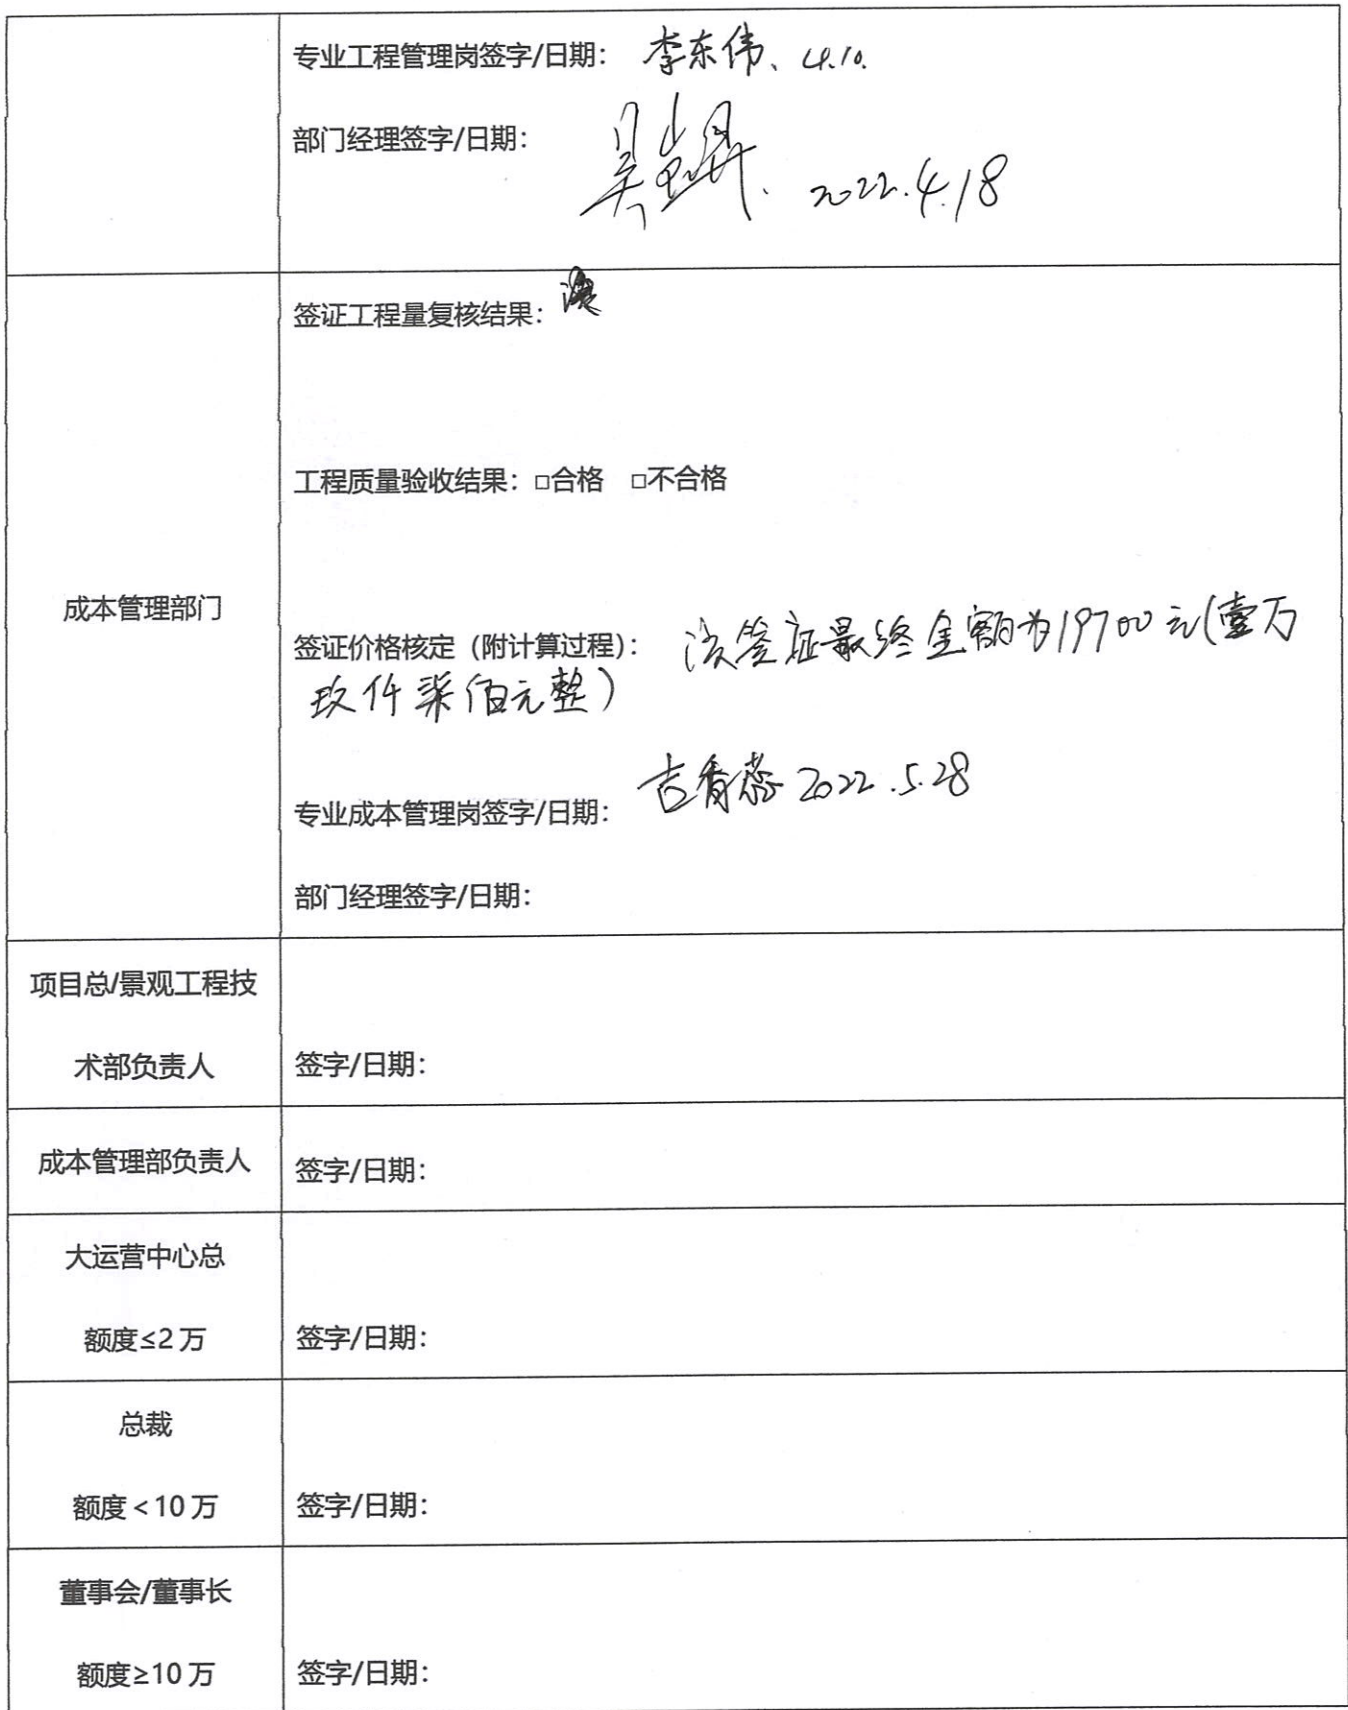 专业工程管理岗签字/日期： 李东伟、4.10.
部门经理签字/日期：
2022.4.18
签证工程量复核结果：
工程质量验收结果：□合格 □不合格
成本管理部门
签证价格核定（附计算过程）： 该签证最终金额为19700元（壹万
玖仟柒佰元整）
专业成本管理岗签字/日期： 吉香 2022.5.28
部门经理签字/日期：
项目总/景观工程技
术部负责人
签字/日期：
成本管理部负责人
签字/日期：
大运营中心总
额度≤2万
签字/日期：
总裁
额度<10万
签字/日期：
董事会/董事长
额度≥10万
签字/日期：